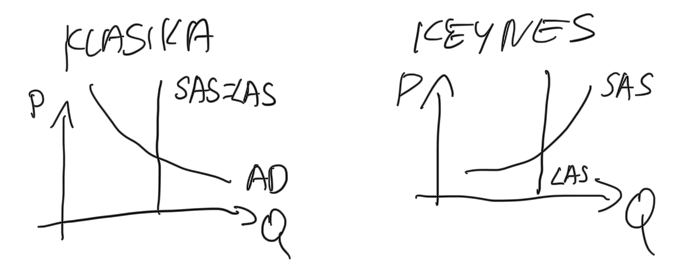 KLASIKA
P
SAS=LAS
AD
Q
KEYNES
P
SAS
LAS
Q